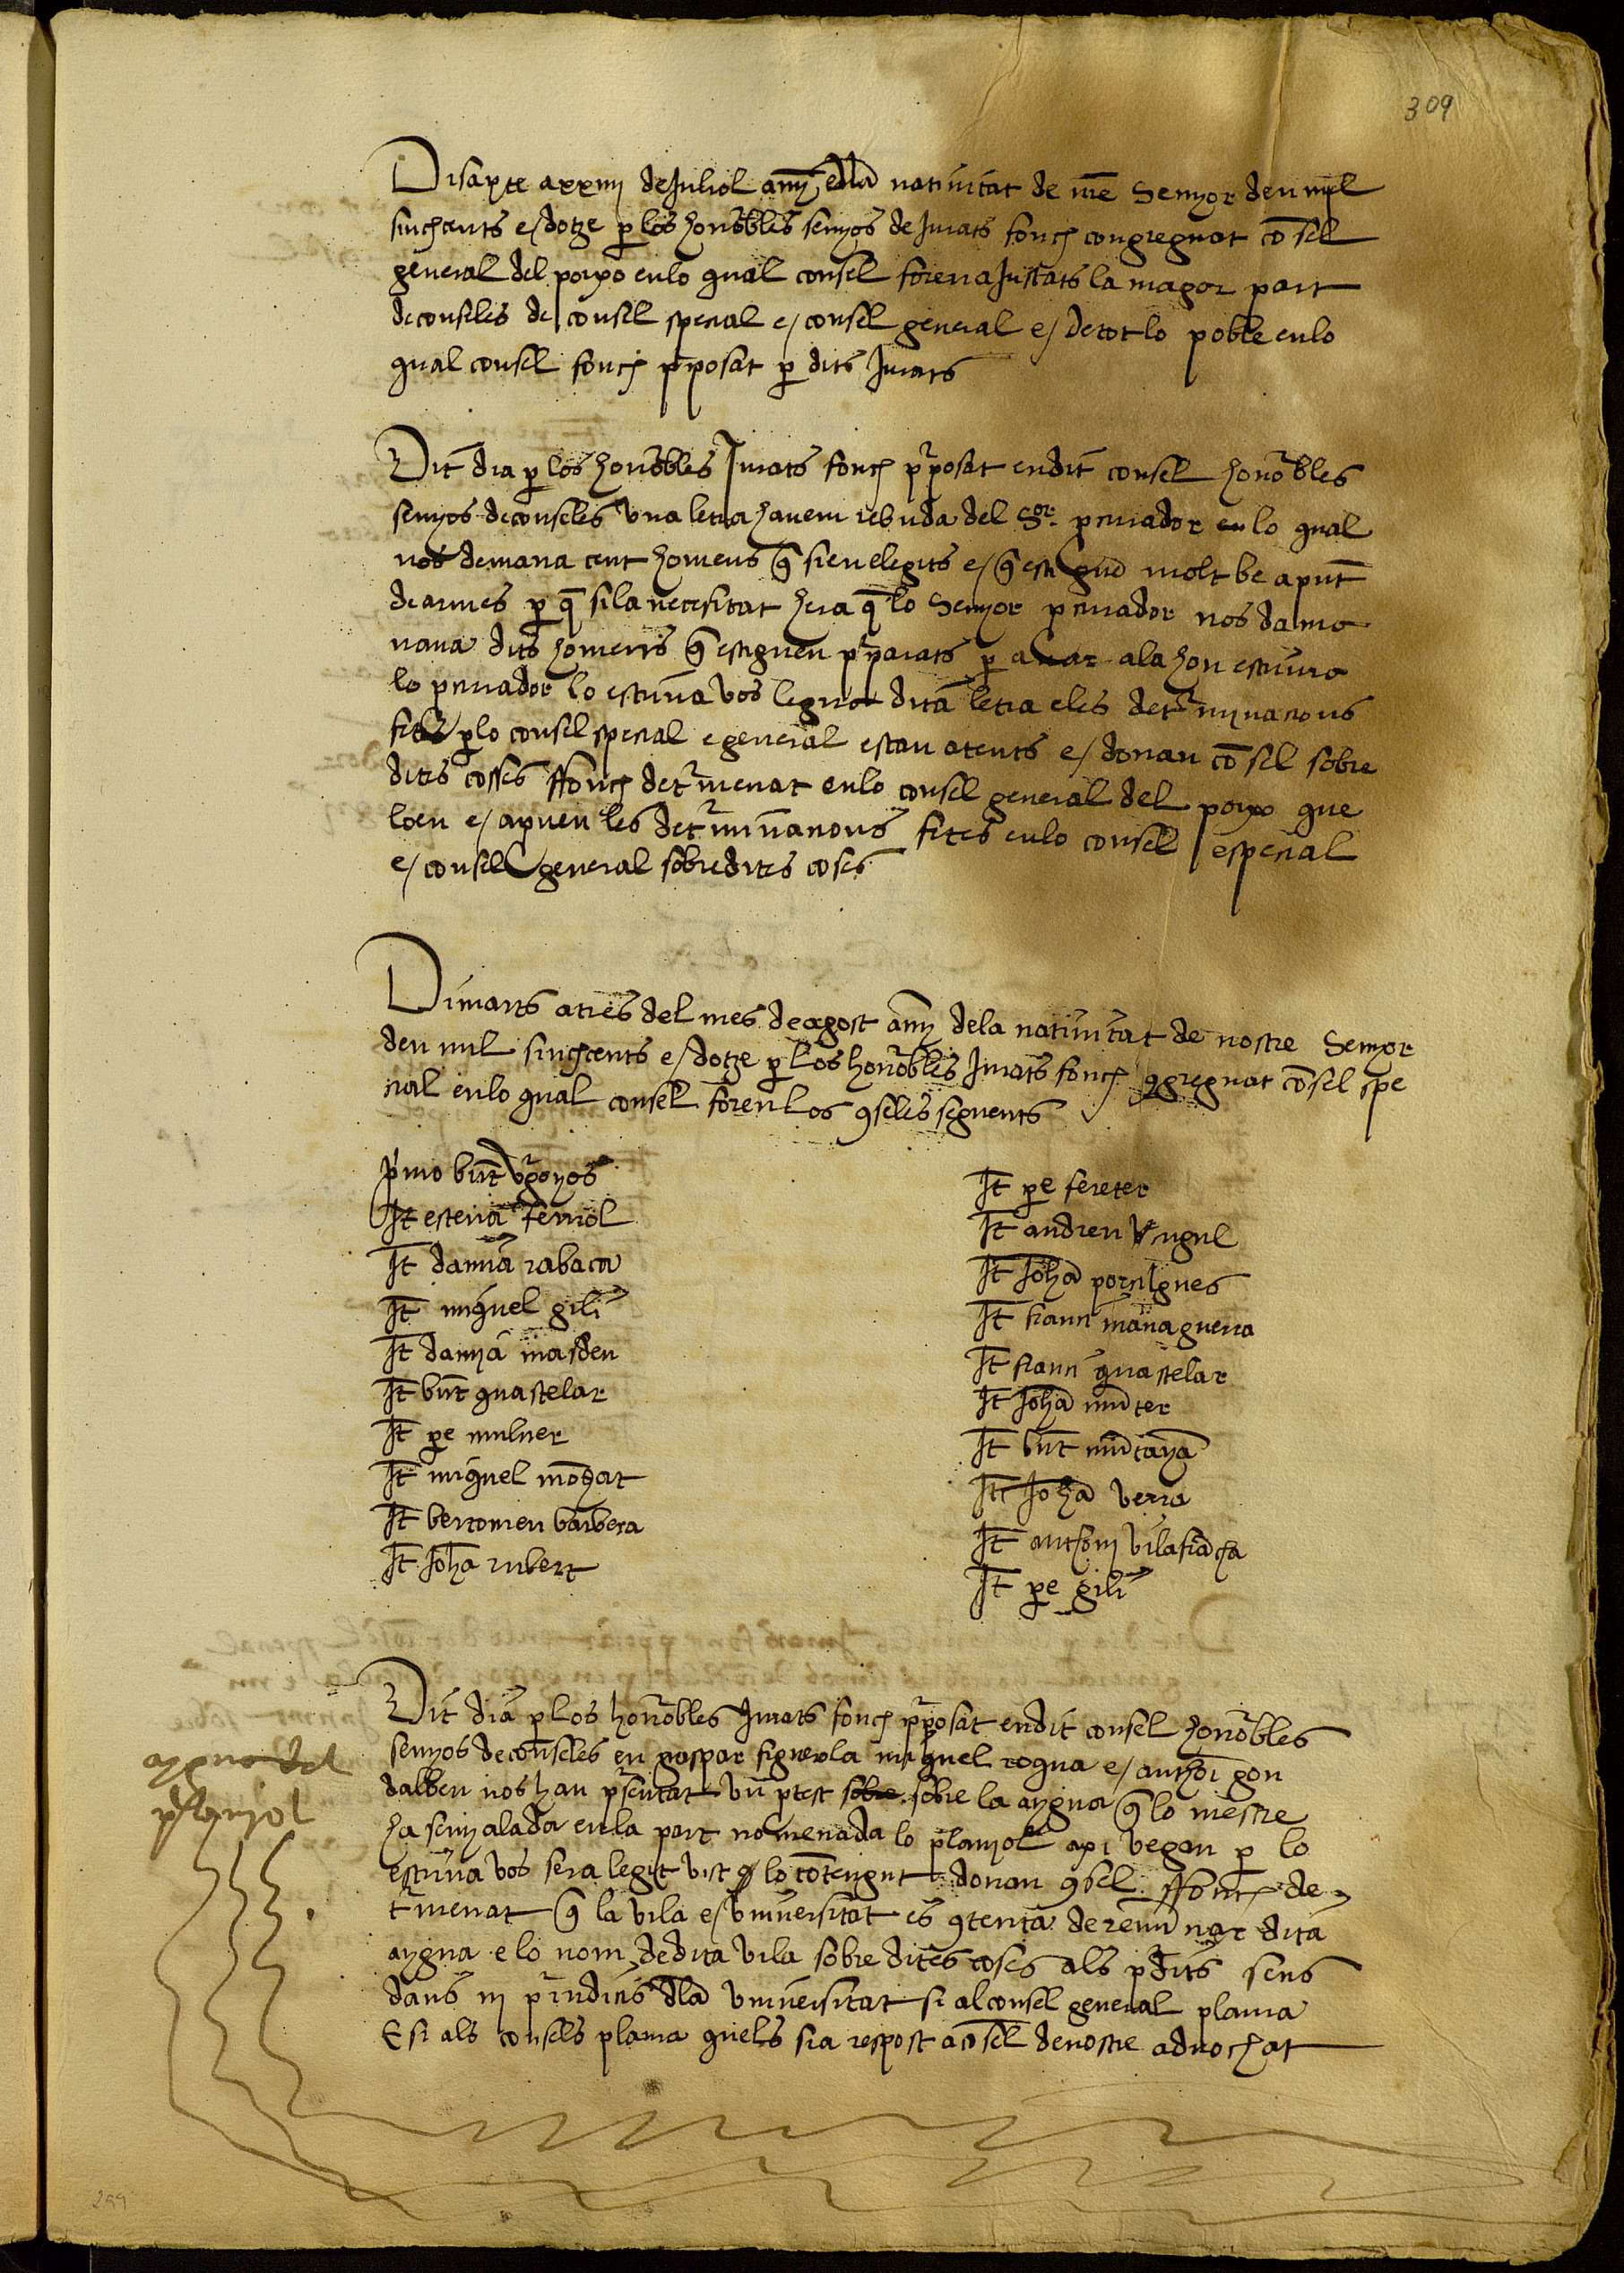 309
Disapte a xxiiij de Juliol any dela nativitat de nre Senyor deu myl
sinchcents e dotze per los honorables senyos de Jurats fonch congreguat consel
general del popo en lo qual consel foren ajustats la magor part
de conseles de consel special e consel general e de tot lo poble en lo
qual consel fonch proposat per dits Jurats
Dit dia per los honorables Jurats fonch proposat en dit consel honorables
senyos de conseles una letra havem rebuda del Sor procurador en lo qual
nos demana cent homens que sien elegits e que estiguen molt be a punt
de armes per que si la necesitat hera que lo Senyor procurador nos damo
nava dits homens que estiguen preparats per anar ala hon escriura
lo procurador lo escriva vos legira dita letra e les determinacions
fetes per lo consel special e general estau atents e donau consel sobre
dites cosses ffonch determenat en lo consel general del popo que
loen e aproven les determinacions fetes en lo consel especial
e consel general sobre dites coses
Dimarts a tres del mes de agost any dela nativitat de nostre Senyor
deu mil sinchcents e dotze per los honorables Jurats fonch congreguat consel spe
cial en lo qual consel foren los conseles seguents
primo bnt vgoyos
It esteva ferriol
It damia rabaca
It miguel gili
It damya masdeu
It bnt guastelar
It pere mulner
It miguel monhat
It bertomeu barbera
It Joha rubert
It pere fereter
It andreu Urugul
It Joha porcilgues
It franci managuerra
It franci guastelar
It Joha munter
It bnt muntaya
It Joha verra
It anthoni vilafrancha
It pere gili
Dit dia per los honorables Jurats fonch proposat en dit consel honorables
senyos de conseles en gaspar figuerola miquel rogua e anthoni gon
dalbeu nos han presentat un protest sobre sobre la aygua que lo mestre
ha senyalada en la part nomenada lo planyol api vegau per lo
escriva vos sera legit vist lo contengut donau consel ffonch de
termenat que la vila e universitat es contenta de renunciar dita
aygua e lo nom de dita vila sobre dites coses als predits sens
dans ni prejudicis dela universitat si al consel general plaura
E si als consels plaura quels sia respost a consel de nostre advochat
aygua del
planyol
299